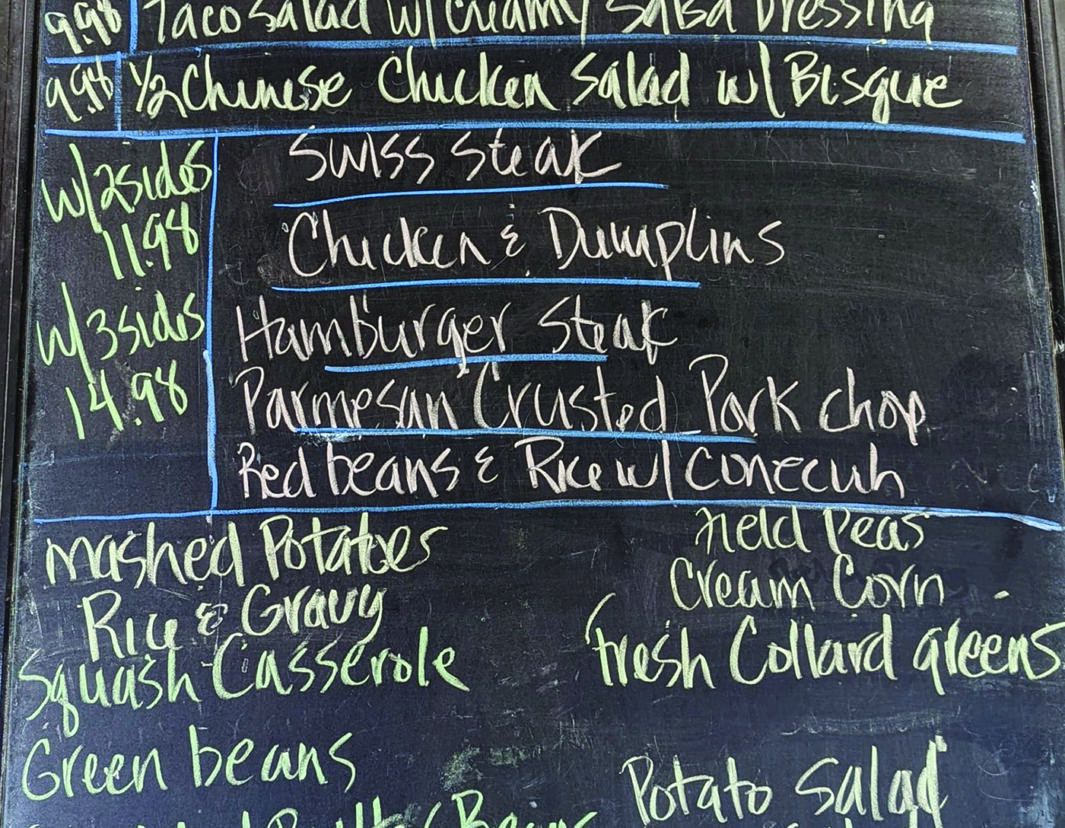 9.98 Taco Salad w/ Creamy Salsa Dressing
9.98 1/2 Chinese Chicken Salad w/ Bisque
w/2sides
11.98
w/3sides
14.98
Swiss Steak
Chicken & Dumplins
Hamburger Steak
Parmesan Crusted Pork chop
Red beans & Rice w/ Conecuh
Mashed Potatoes
Rice & Gravy
Squash Casserole
Green beans
Butter Beans
Field Peas
Cream Corn
Fresh Collard greens
Potato Salad